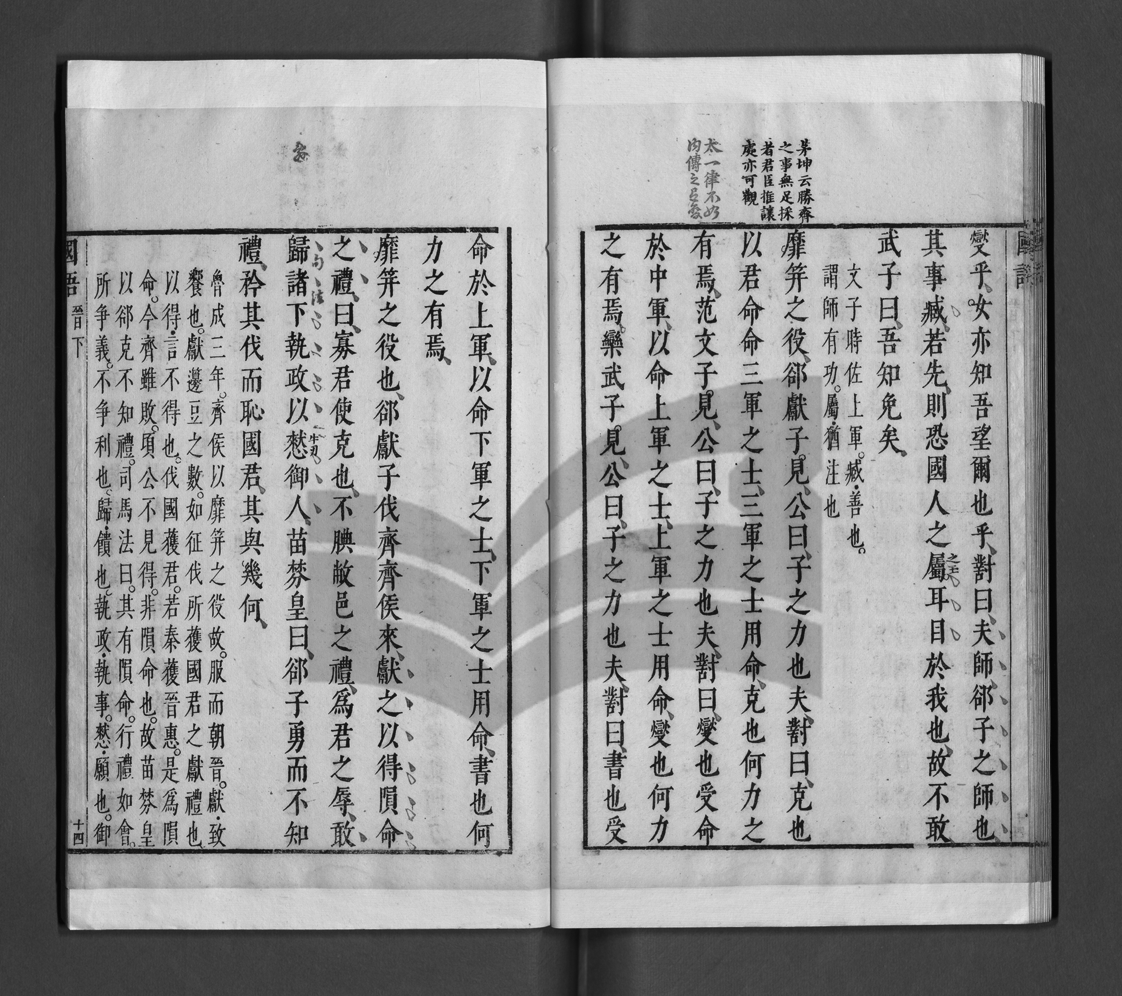 茅坤云勝齊
之事無足採
者君臣推讓
處亦可觀
太一律不如
內傳之
國語
燮乎女亦知吾望爾也乎對曰夫師郤子之師也
其事臧若先則恐國人之屬耳目於我也故不敢
之玉
武子曰吾知免矣
文子時佐上軍臧善也
謂師有功屬猶注也
靡笄之役郤獻子見公曰子之力也夫對曰克也
以君命命三軍之士三軍之士用命克也何力之
有焉范文子見公曰子之力也夫對曰燮也受命
於中軍以命上軍之士上軍之士用命燮也何力
之有焉欒武子見公曰子之力也夫對曰書也受
命於上軍以命下軍之士下軍之士用命書也何
力之有焉
靡笄之役也郤獻子伐齊齊侯來獻之以得隕命
之禮曰寡君使克也不腆敝邑之禮為君之辱敢
歸諸下執政以憖御人苗棼皇曰郤子勇而不知
禮矜其伐而恥國君其與幾何
魯成三年齊侯以靡笄之役故服而朝晉獻致
饔也獻籩豆之數如征伐所獲國君之獻禮也
以得言不得也伐國獲君若秦獲晉惠是為隕
命今齊雖敗頃公不見得非隕命也故苗棼皇
以郤克不知禮司馬法曰其有隕命行禮如會
所爭義不爭利也歸饋也執政執事憖願也御
國語 晉下 十四